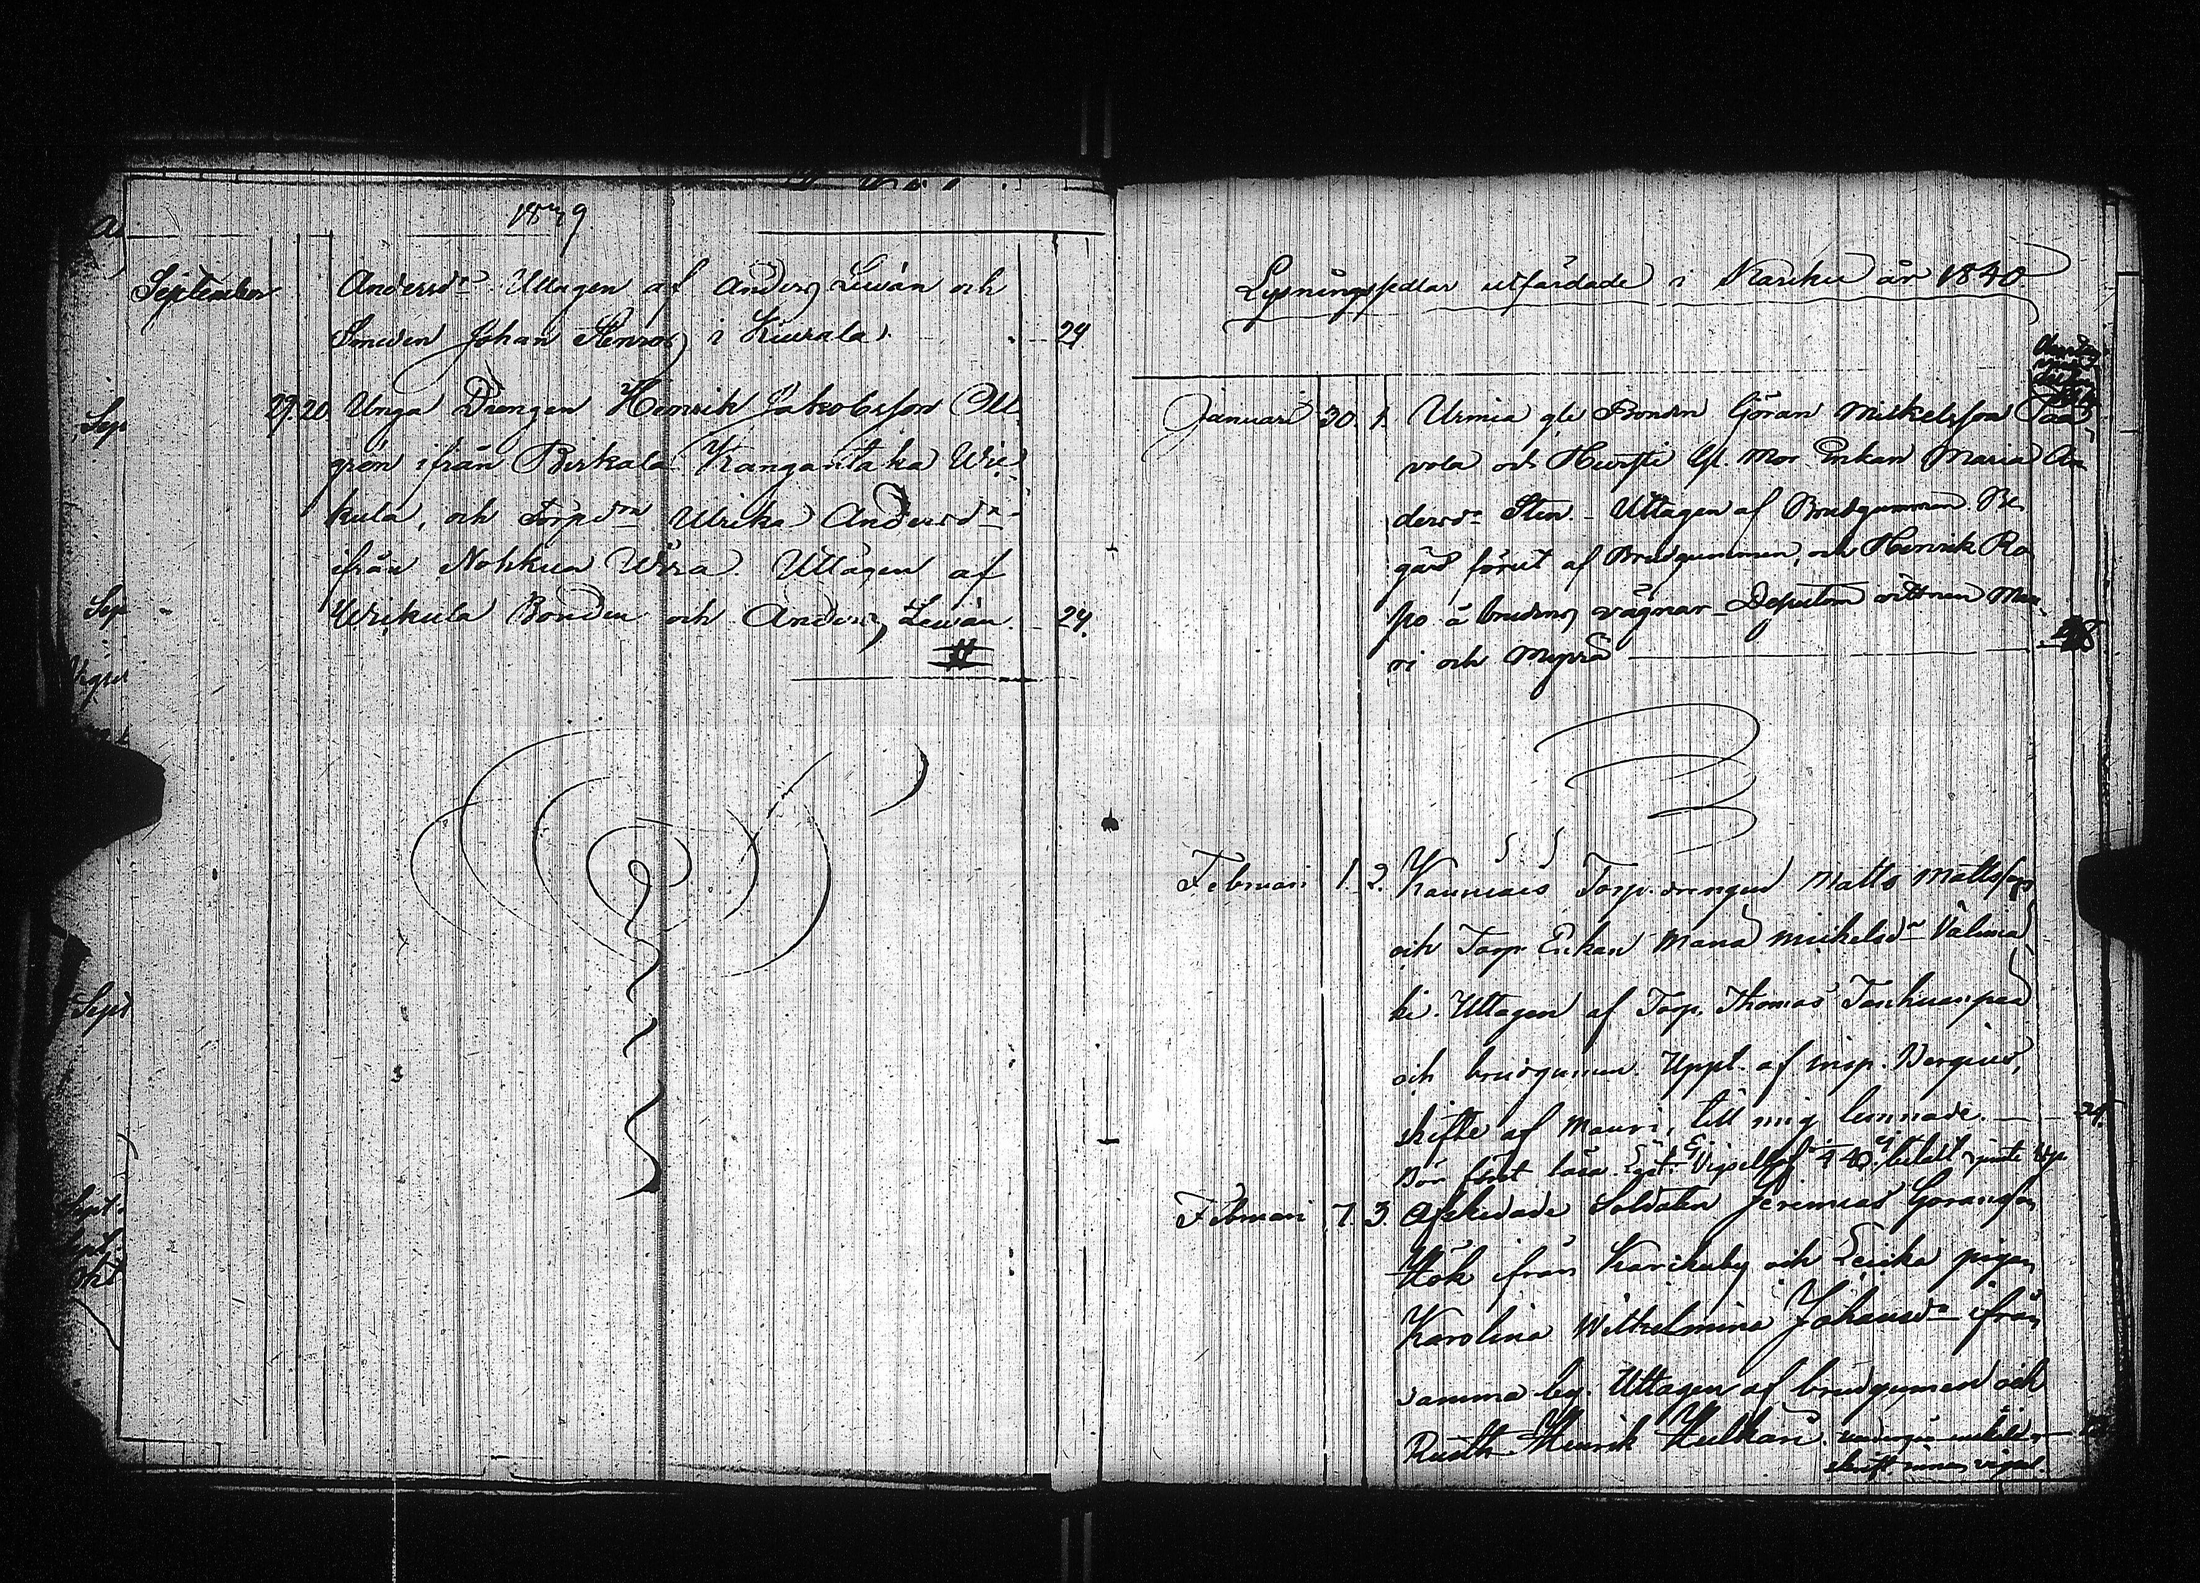 1839
September Andersdr. Uttagen af Anders Levän och
Smeden Johan Stenroos i Kiurala. 24
29. 20. Unga Drengen Henrik Jakobsson
grén ifrån Birkala Kangantaka Wei-
kula, och Torpdrn Ulrika Andersdr
ifrån Nohkua Wära. Uttagen af
Weikula Bonden och Anders Levän. 24.
Sep
Sep
Sept
Lysningssedlar utfärdade i Karcku år 1840.
Januari 30. 1. Urmia gle Bonden Göran Mickelsson Paa-
vola och Heinois Gl. Mor Enkan Maria An-
dersdr Sten. Uttagen af Brudgummen Be-
gärd förut af Brudgummen, och Henrik Ra-
po å brudens vägnar. Desutom vittnen Mau-
ri och Myrrä
Februari 1. 2. Kauniais Torp. drengen Matts Mattsson
och Torp. Enkan Maria Mickelsdr Välimä-
ki. Uttagen af Torp. Thomas Tanhuanpää
och brudgumen. Uppt. af insp. Bergius,
skifte af Mauri, till mig lemnade. 24.
Bör först läsa.
Februari 7. 3. Afskedade Soldaten Jeremias Göransson
Hök ifrån Karckuby och pigan
Karolina Wilhelmina Johansdr ifrån
samma by. Uttagen af brudgumen och
Rusth. Henrik Kulkari.
skrift innan vigsel.